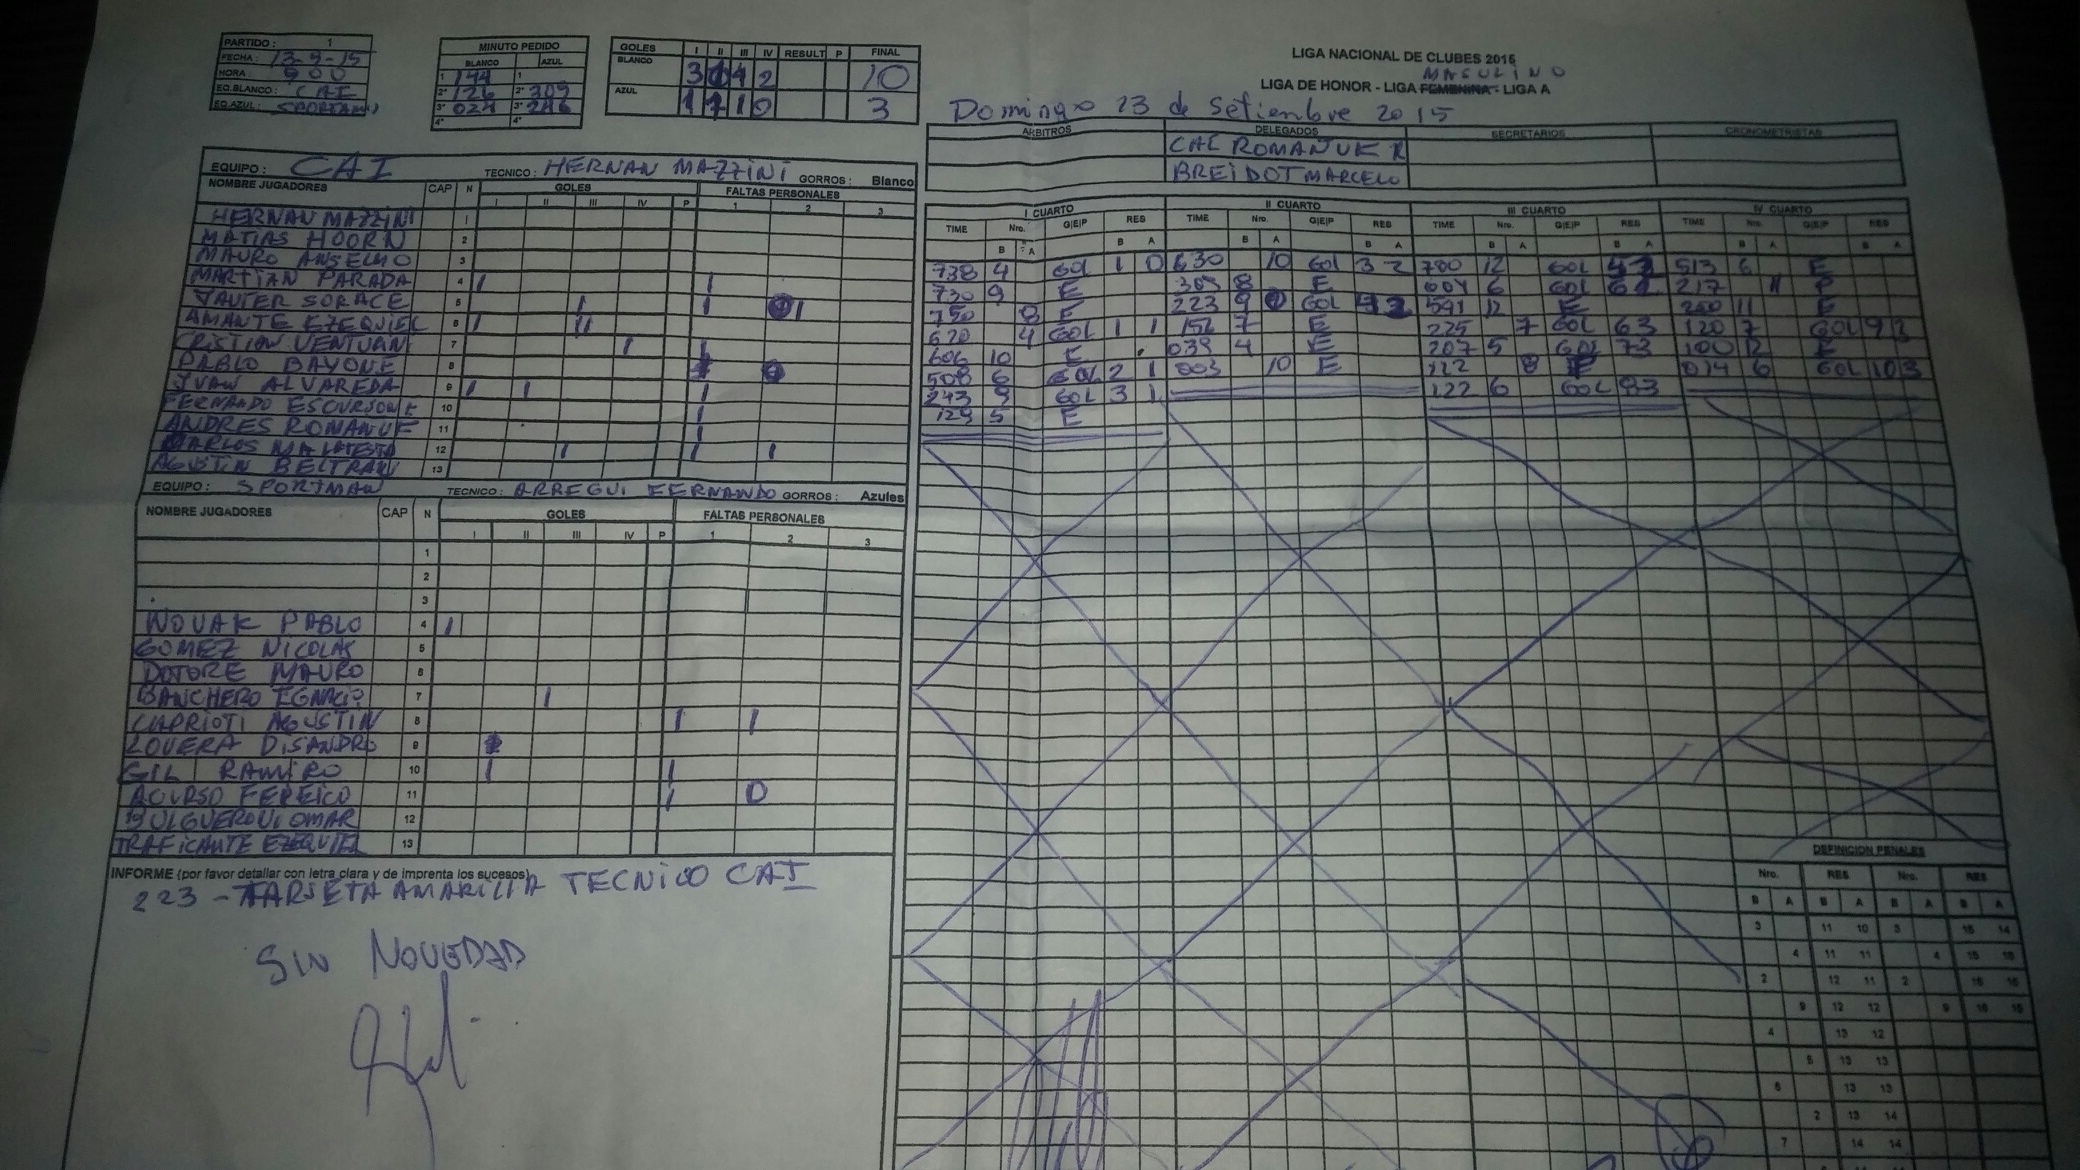 PARTIDO : 1
FECHA : 13-9-15
HORA : 900
EQ.BLANCO : CAI
EQ.AZUL : SPORTMAN
MINUTO PEDIDO
BLANCO AZUL
1 144 1
2° 126 2° 309
3° 024 3° 246
4° 4°
GOLES I II III IV RESULT P FINAL
BLANCO 3 1 4 2 10
AZUL 1 1 1 0 3
LIGA NACIONAL DE CLUBES 2015
MASCULINO
LIGA DE HONOR - LIGA FEMENINA - LIGA A
Domingo 13 de Setiembre 2015
ARBITROS DELEGADOS SECRETARIOS CRONOMETRISTAS
CAI ROMANUK R
BREIDOT MARCELO
EQUIPO : CAI TECNICO : HERNAN MAZZINI GORROS : Blanco
NOMBRE JUGADORES CAP N GOLES FALTAS PERSONALES
I II III IV P 1 2 3
HERNAN MAZZINI 1
MATIAS HOORN 2
MAURO ANSELMO 3
MARTIAN PARADA 4
JAVIER SORACE 5
AMANTE EZEQUIEL 6
CRISTIAN VENTUAN 7
PABLO BAYONE 8
JUAN ALVAREDA 9
FERNANDO 10
ANDRES ROMANUE 11
CARLOS MALATESTA 12
AGUSTIN BELTRAN 13
EQUIPO : SPORTMAN TECNICO : ARREGUI FERNANDO GORROS : Azules
NOMBRE JUGADORES CAP N GOLES FALTAS PERSONALES
I II III IV P 1 2 3
1
2
3
NOVAK PABLO 4
GOMEZ NICOLAS 5
DOTORE MAURO 6
BANCHERO IGNACIO 7
CAPRIOTI AGUSTIN 8
LOVERA DISANDRO 9
GIL RAMIRO 10
11
OMAR 12
TRAFICANTE EZEQUIEL 13
INFORME (por favor detallar con letra clara y de imprenta los sucesos)
223 - TARJETA AMARILLA TECNICO CAI
SIN NOVEDAD
I CUARTO II CUARTO III CUARTO IV CUARTO
TIME Nro. G|E|P RES TIME Nro. G|E|P RES TIME Nro. G|E|P RES TIME Nro. G|E|P RES
B A B A B A B A B A B A B A B A
738 4 GOL 1 0 630 10 GOL 3 2 700 12 GOL 513 6 E
730 9 E 309 8 E 604 6 GOL 217 11 P
750 8 E 223 9 GOL 591 12 E 200 11 E
620 4 GOL 1 1 151 7 E 225 7 GOL 6 3 120 7 GOL 9 3
606 10 E 039 4 E 207 5 GOL 7 3 100 12 E
508 6 GOL 2 1 003 10 E 122 8 014 6 GOL 10 3
243 9 GOL 3 1 122 6 GOL 8 3
129 5 E
DEFINICION PENALES
Nro. RES Nro. RES
B A B A B A B A
3 11 10 3 15 14
4 11 11 4 15 15
2 12 11 2 16 15
9 12 12 9 16 16
4 13 12
5 13 13
6 13 13
2 13 14
7 14 14